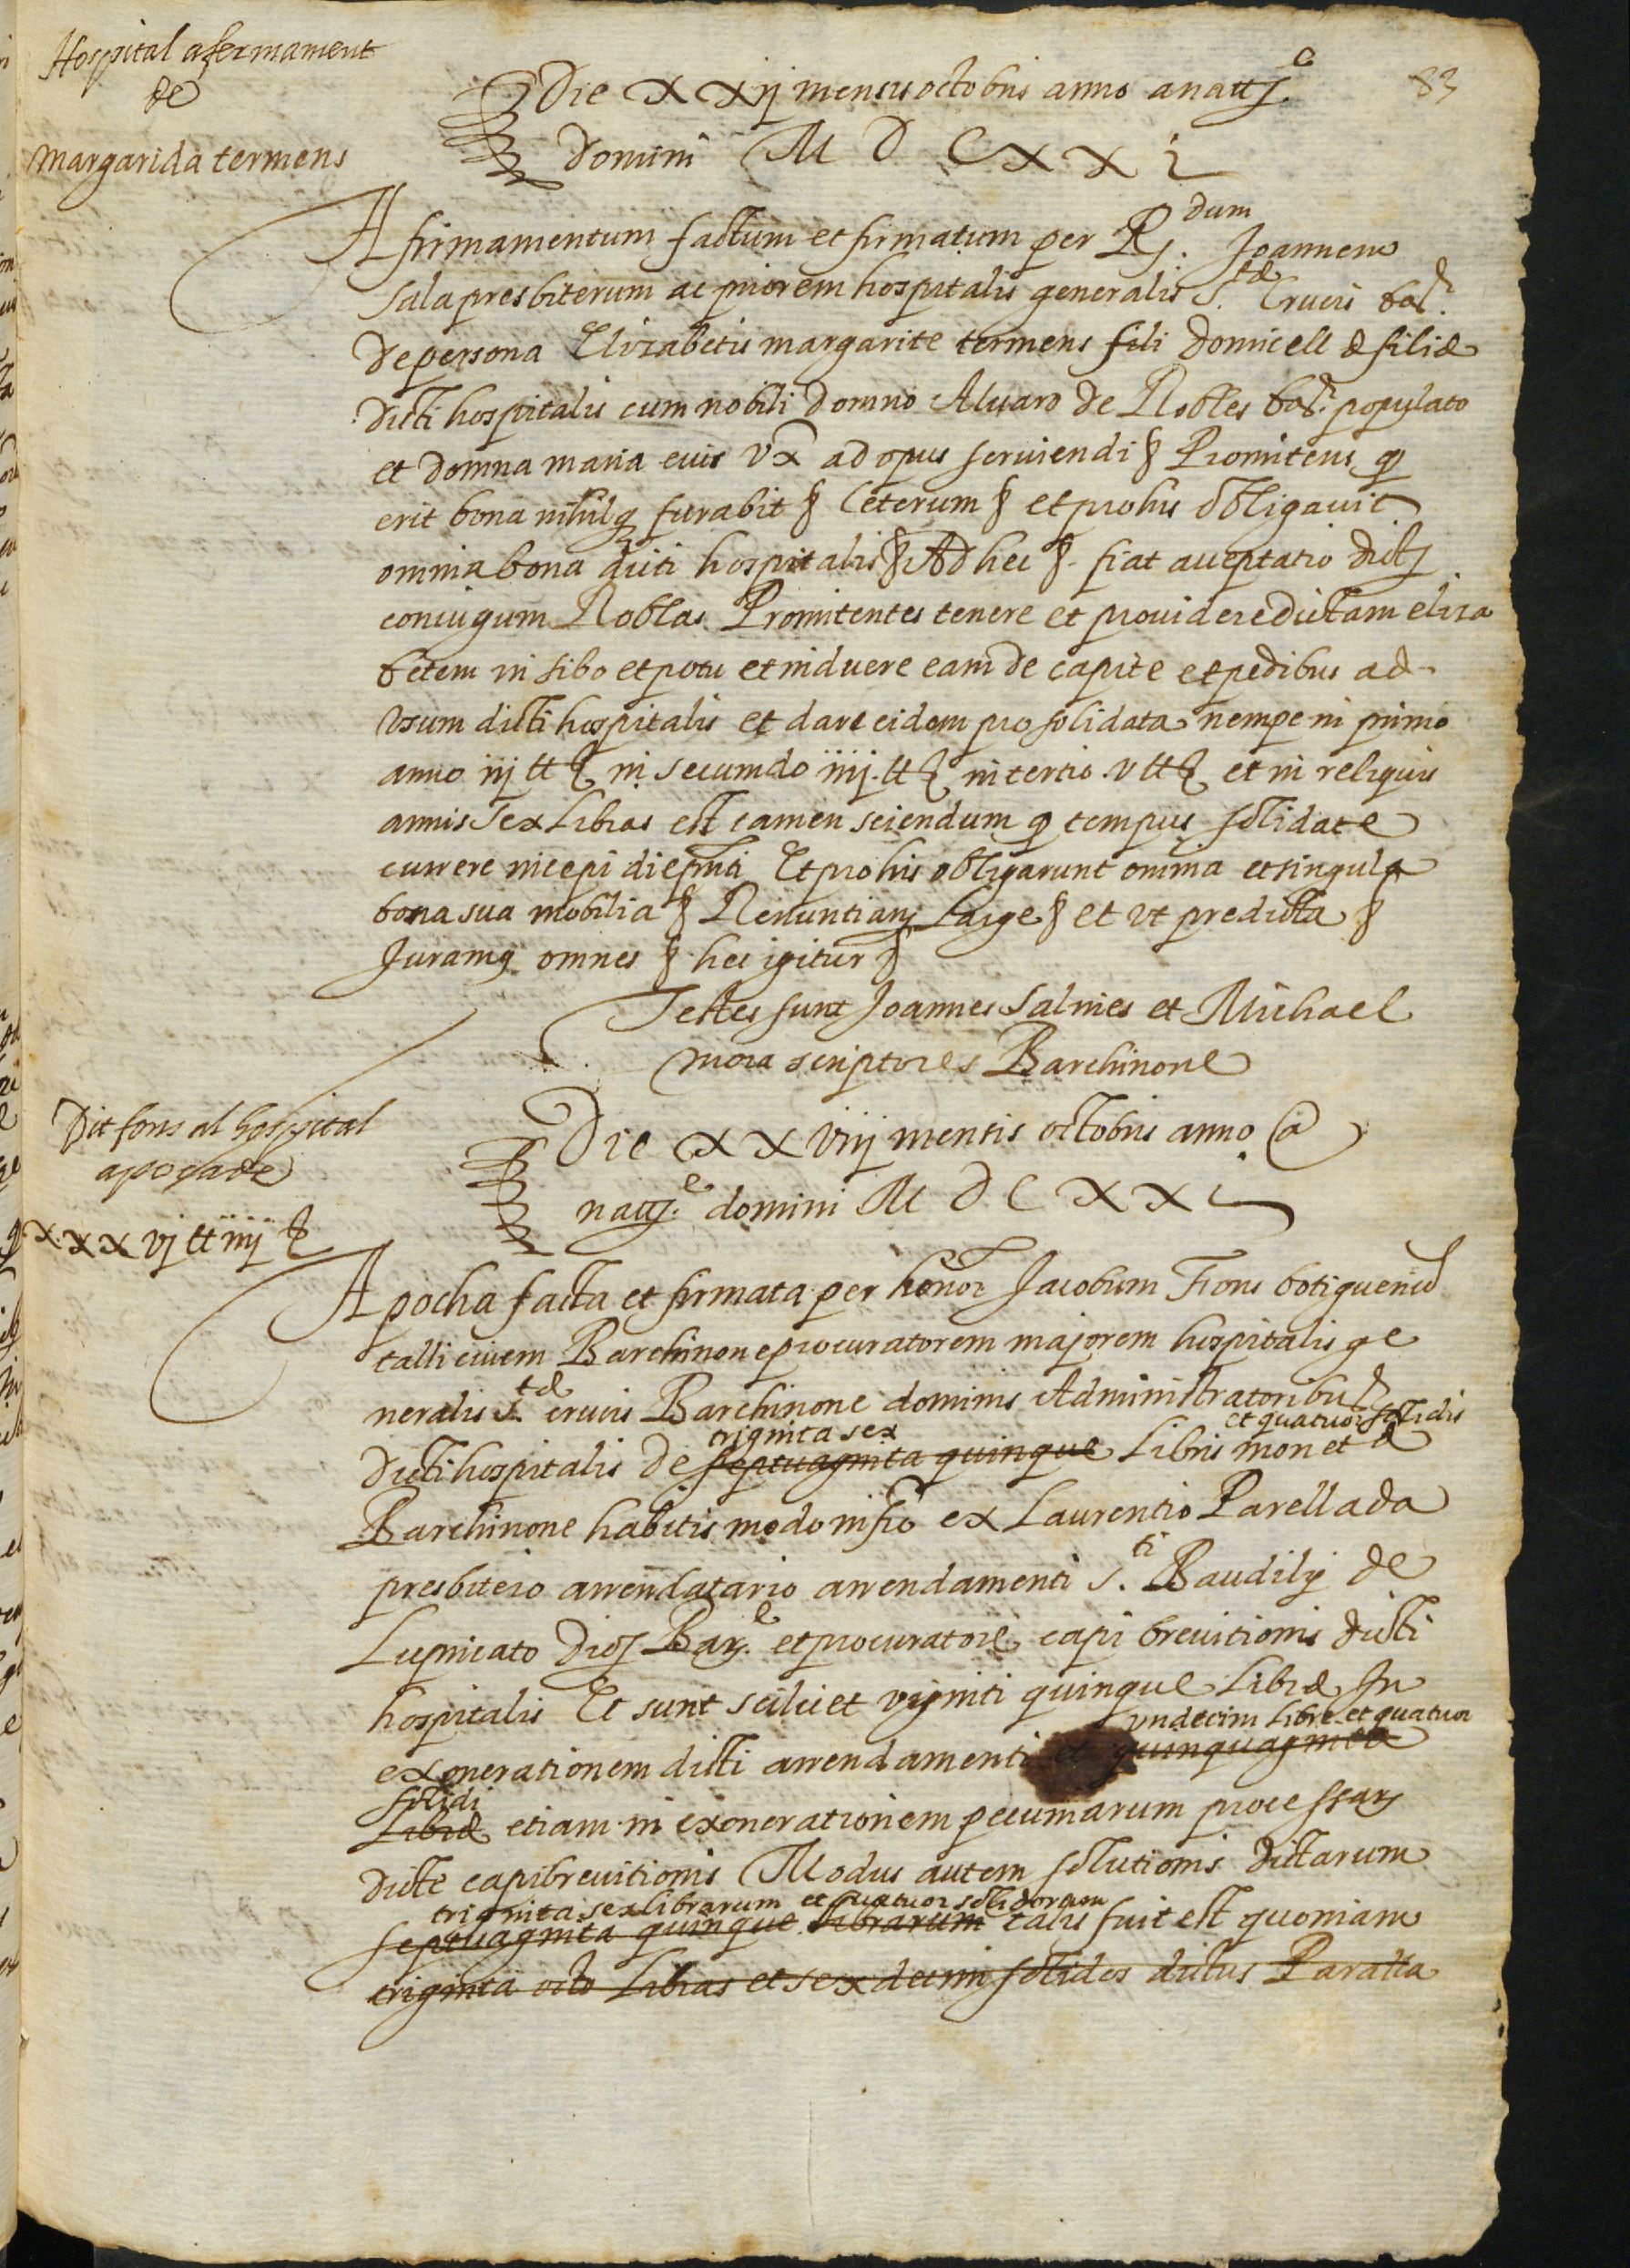 83
Hospital afermament
de
margarida termens
Die XXij mensis octobris anno a natt.e
Domini M D C X X i
Afirmamentum factum et firmatum per R.dum Joannem
Sala presbiterum ac priorem hospitalis generalis S.tæ Crucis
de persona Elizabetis margarite termens fili domicellæ filiæ
dicti hospitalis cum nobili domno Aluaro de Nobles populato
et domna maria eius vx ad opus seruiendi § Promitens q
erit bona nihilq furabit § Ceterum § et pro his obligauit
omnia bona dicti hospitalis § Ad hec § fiat acceptatio dict
coniugum Noblas Promitentes tenere et prouidere dictam eliza
betem in sibo et potu et induere eam de capite et pedibus ad
vsum dicti hospitalis et dare eidem pro solidata nempe in primo
anno iij tt in secumdo iiij tt in tertio v tt et in reliquis
annis sex Libras est tamen sciendum q tempus solidate
currere incepi die Et pro his obligarunt omnia et singula
bona sua mobilia § Renuntian Large § et vt predicta §
Juramq omnes § hec igitur §
Testes sunt Joannes Salines et Michael
mora scriptores Barchinone
Dit fons al hospital
apoca de
xxxvj tt iiij
Die XXviiij mensis octobris anno a
natt.e domini M D C X X i
Apocha facta et firmata per honor Jacobum Fons botiguerium
talli ciuem Barchinone procuratorem majorem hospitalis ge
neralis S.tæ crucis Barchinone dominis Administratoribus
triginta sex et quatuor solidis
dicti hospitalis de septuaginta quinque Libris monetæ
Barchinone habitis modo infro ex Laurentio Parellada
presbitero arrendatario arrendamenti S.ti Baudilij de
Lupricato Dios Bar.e et procuratore capi breuitionis dicti
hospitalis Et sunt scilicet viginti quinque Libræ In
vndecim Libre et quatuor
exonerationem dicti arrendamenti et quinquaginta
solidi
Libræ etiam in exonerationem pecuniarum processar
dicte capibreuitionis Modus autem solutionis dictarum
triginta sex librarum et quatuor solidorum
septuaginta quinque librarum talis fuit est quoniam
triginta octo Libras et sexdecim solidos dictus Paralta